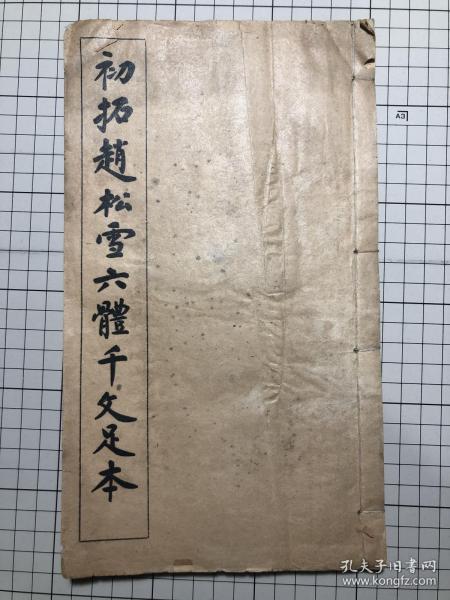 初拓趙松雪六體千文足本
A3
孔夫子旧书网
www.kongfz.com